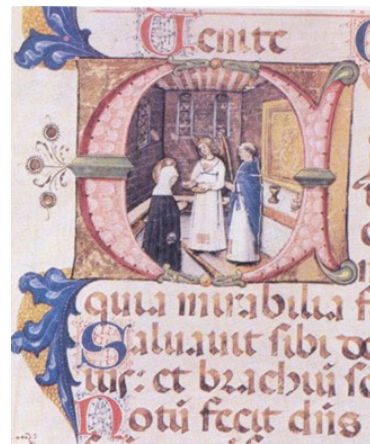 Venite
quia mirabilia f
Saluauit sibi de
ius: et brachiū sc
Notū fecit dñs